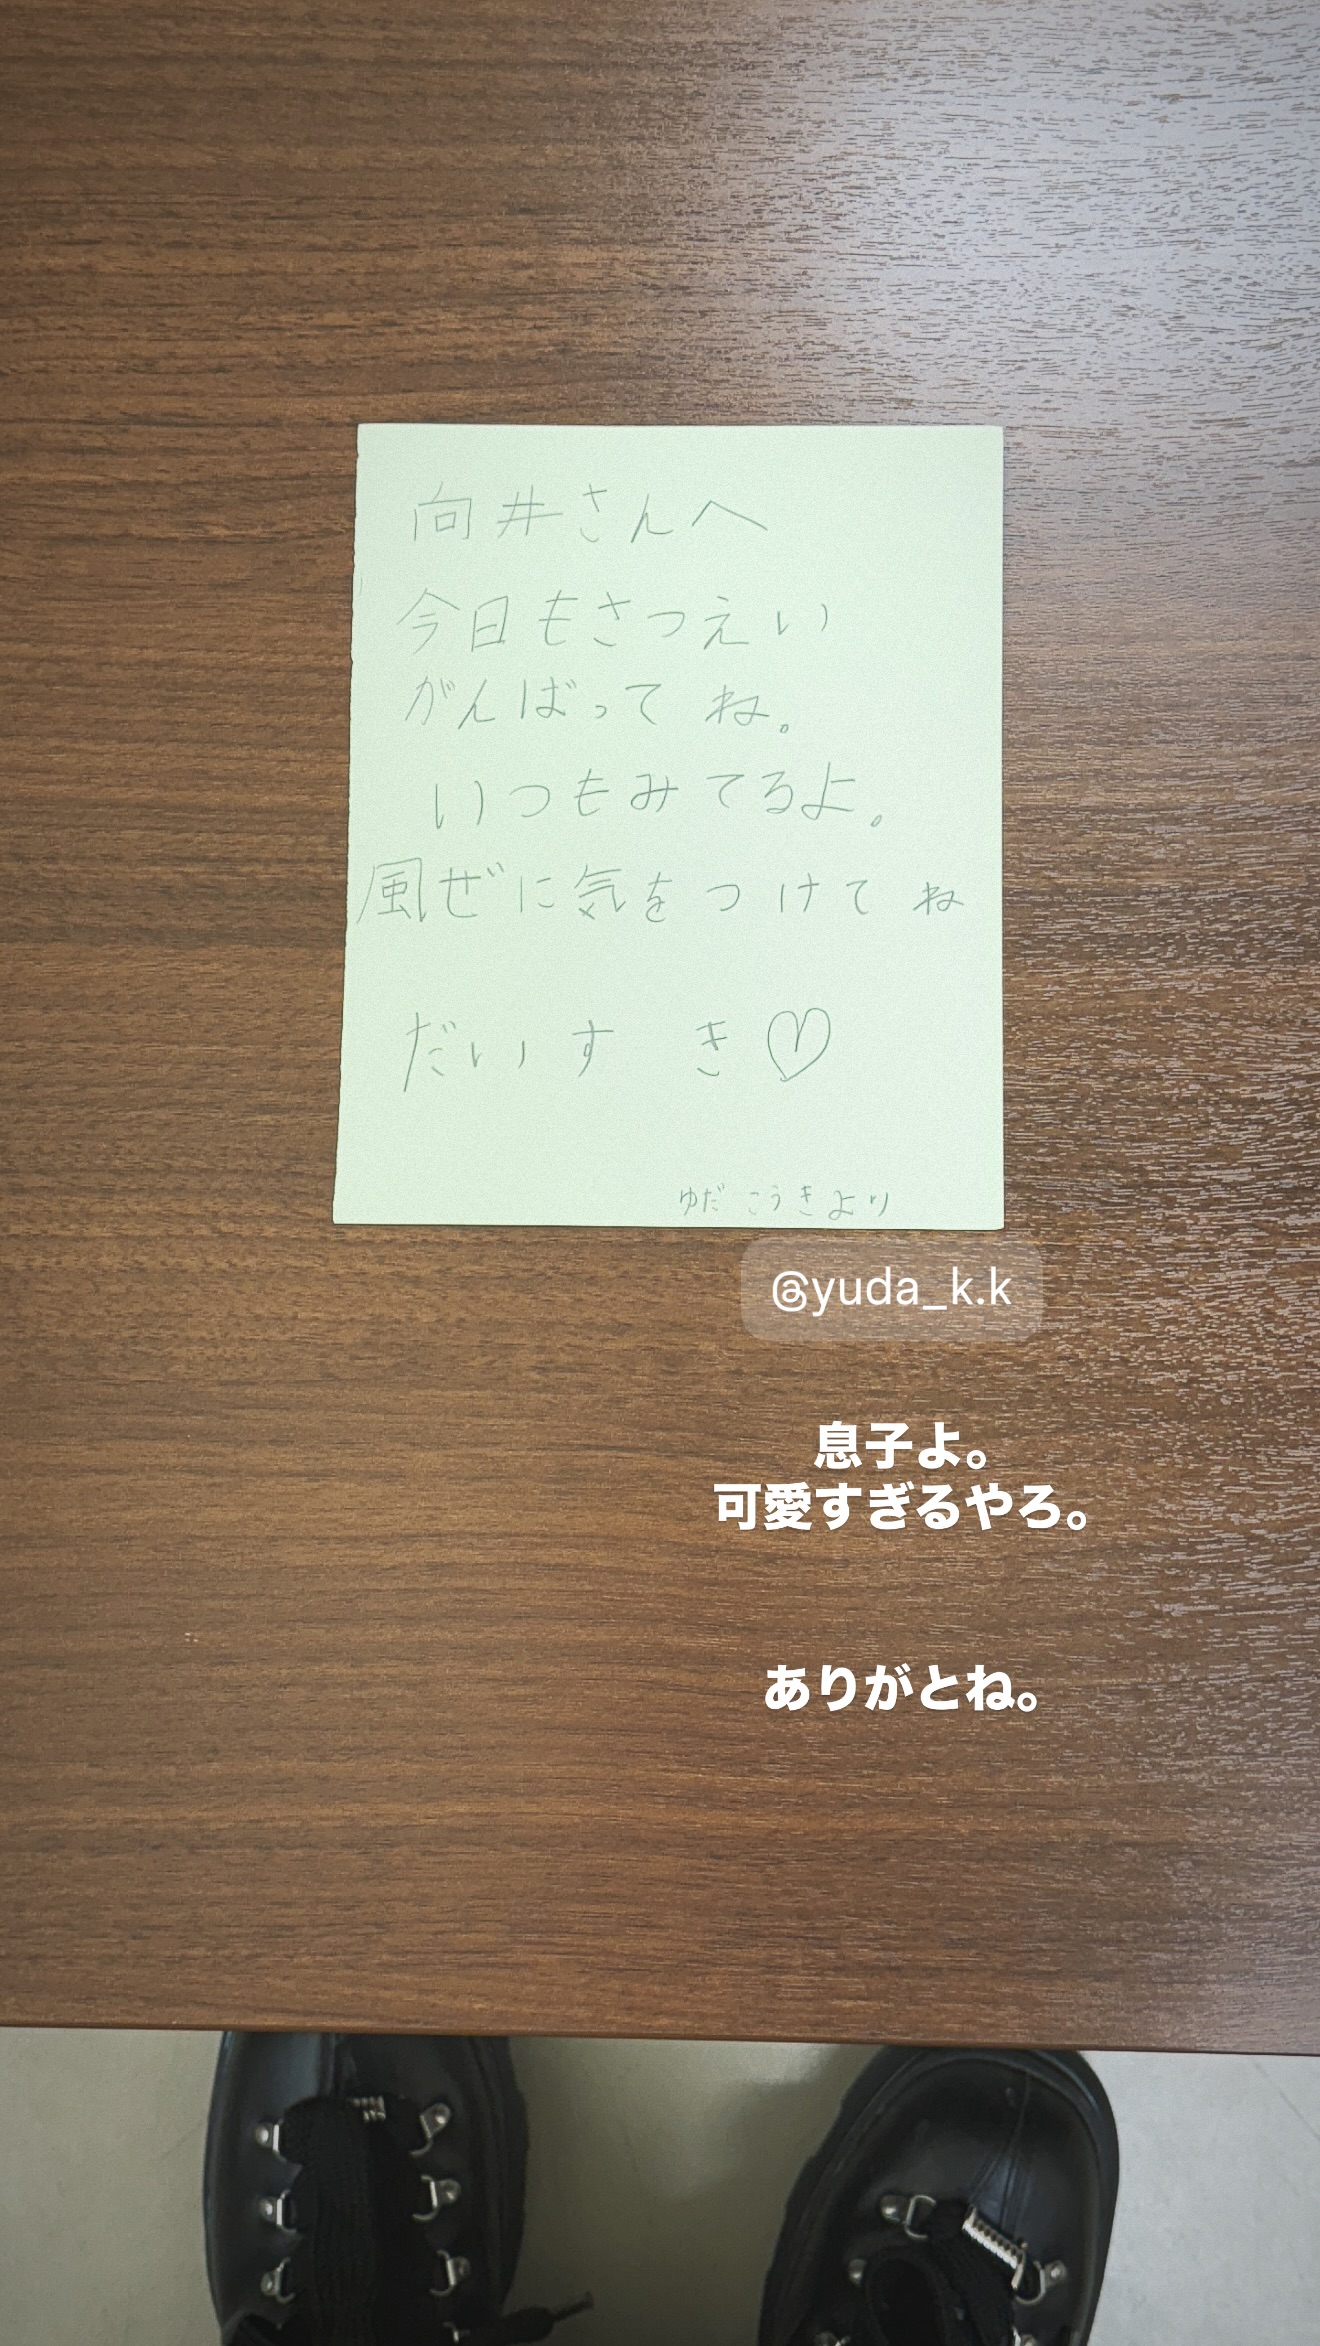 向井さんへ
今日もさつえい
がんばってね。
いつもみてるよ。
風ぜに気をつけてね
だいすき♡
ゆだ こうきより
@yuda_k.k
息子よ。
可愛すぎるやろ。
ありがとね。